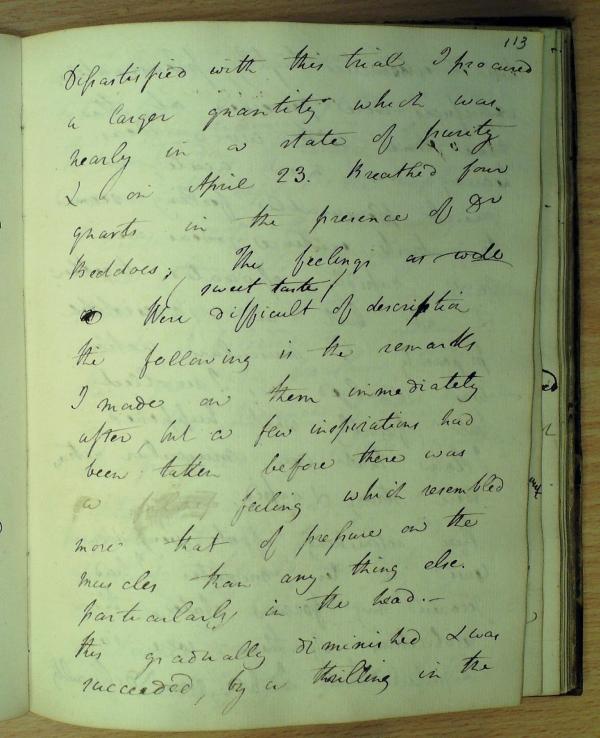 113
Dissatisfied with this trial I procured
a larger quantity which was
nearly in a state of purity
& on April 23. Breathed four
quarts in the presence of Dr
Beddoes; The feelings as well
(sweet taste)
as Were difficult of description
the following is the remarks
I made on them immediately
after but a few inspirations had
been taken before there was
a feeling which resembled
more that of pressure on the
muscles than any thing else.
particularly in the head.—
this gradually diminished & was
succeeded, by a thrilling in the